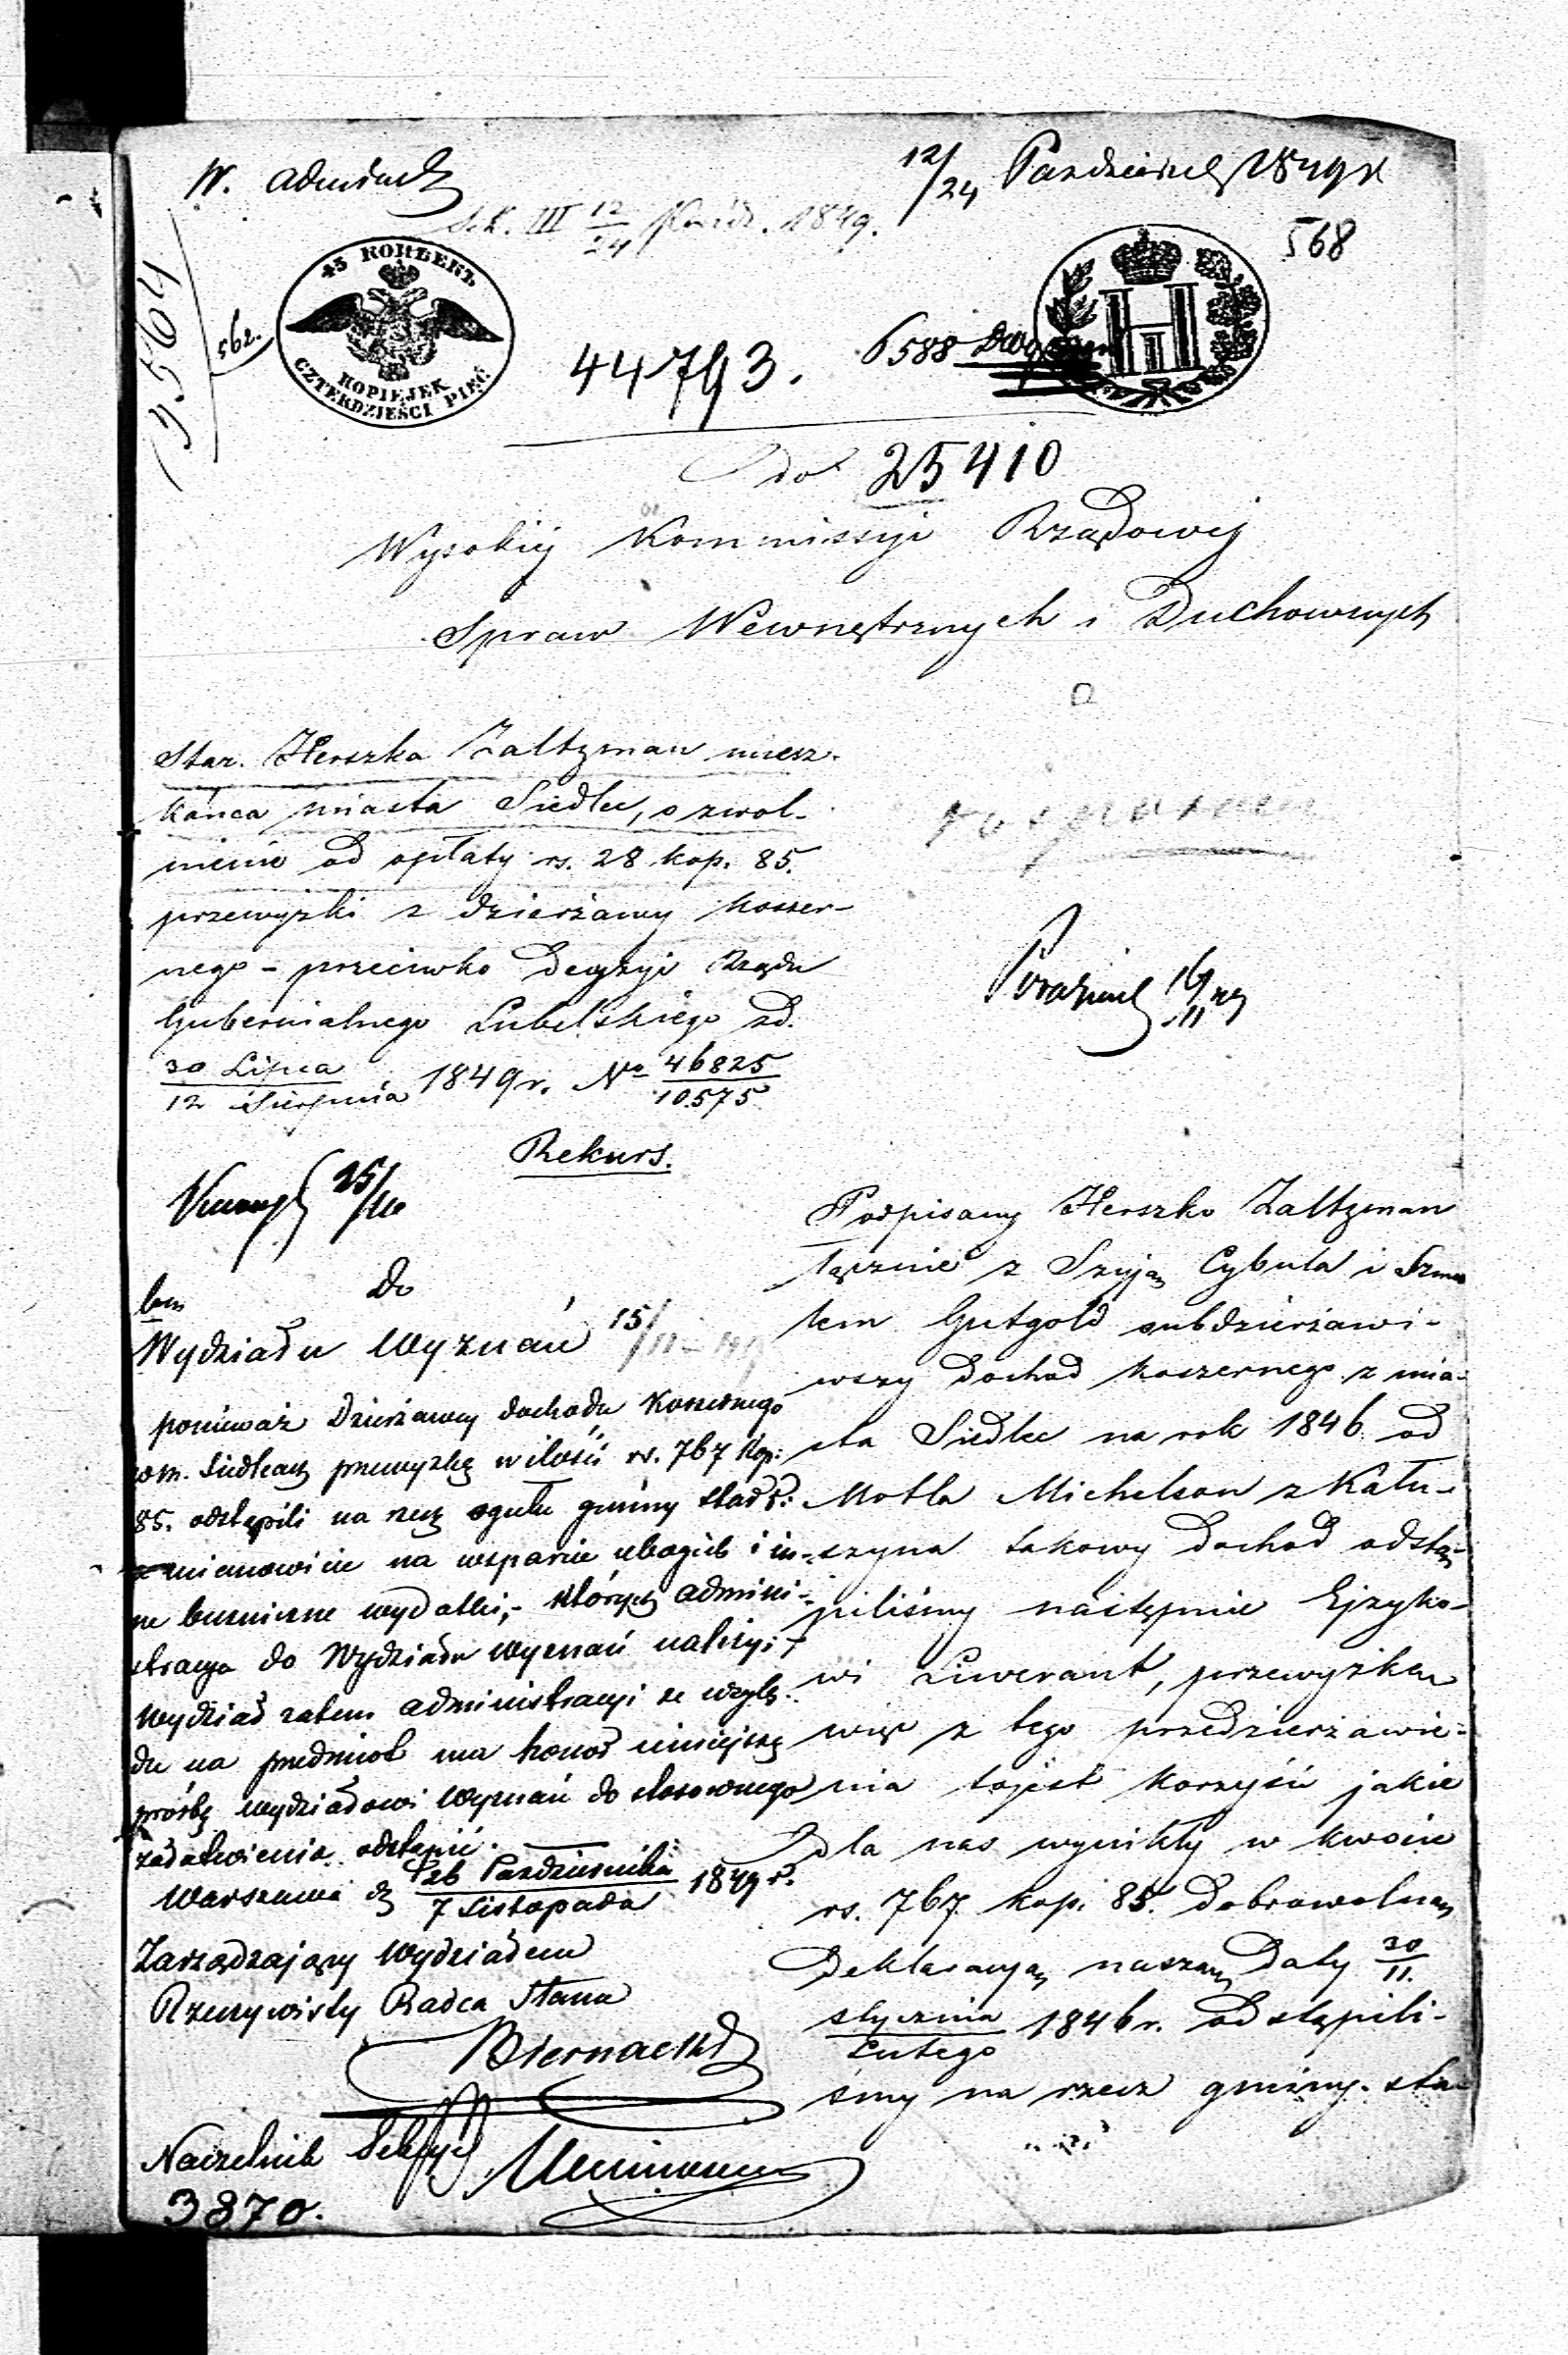 W. Administ
12/24 Października 1849 r
Sek. III 12/24 Paźdz. 1849.
568
562.
45 КОПѢЕКЪ
KOPIEJEK
CZTERDZIEŚCI PIĘĆ
44793.
6588
do 25410
Wysokiej Kommissyi Rządowej
Spraw Wewnętrznych i Duchownych
Star. Herszka Zaltzman miesz-
kańca miasta Siedlec, o zwol-
nienie od opłaty rs. 28 kop. 85.
przewyżki z dzierżawy koszer-
nego – przeciwko Decyzyi Rządu
Gubernialnego Lubelskiego z d.
30 Lipca / 12 Sierpnia 1849 r. No 46825 / 10575
Rekurs.
25/10
Do
Wydziału Wyznań 15/11
ponieważ Dzierżawcy dochodu Koszernego
w m. Siedlcach przewyżkę w ilości rs. 767 kop:
85. odstąpili na rzecz ogółu gminy Star:
a mianowicie na wsparcie ubogich i in-
ne bużnicze wydatki, – których admini-
stracya do Wydziału Wyznań należy; –
Wydział zatem administracyi ze wzglę-
du na przedmiot ma honor niniejszą
prośbę wydziałowi Wyznań do stosownego
załatwienia odstąpić.
Warszawa d 26 Października / 7 Listopada 1849 r.
Zarządzający Wydziałem
Rzeczywisty Radca Stanu
Biernacki
Naczelnik Sekcyi
3870.
Podpisany Herszko Zaltzman
łącznie z Szyją Cybula i Szmu
lem Gutgold subdzierżawi-
wszy dochód koszernego z mia-
sta Siedlec na rok 1846 od
Motla Michelson z Kału-
szyna takowy dochód odstą-
piliśmy następnie Ejzyko-
wi Liwerant, przewyżkę
więc z tego przedzierżawie-
nia to jest korzyść jakie
dla nas wynikły w kwocie
rs. 767 kop. 85. dobrowolną
Deklaracyą naszą Daty 30/11.
Stycznia / Lutego 1846 r. odstąpili-
śmy na rzecz gminy sta-